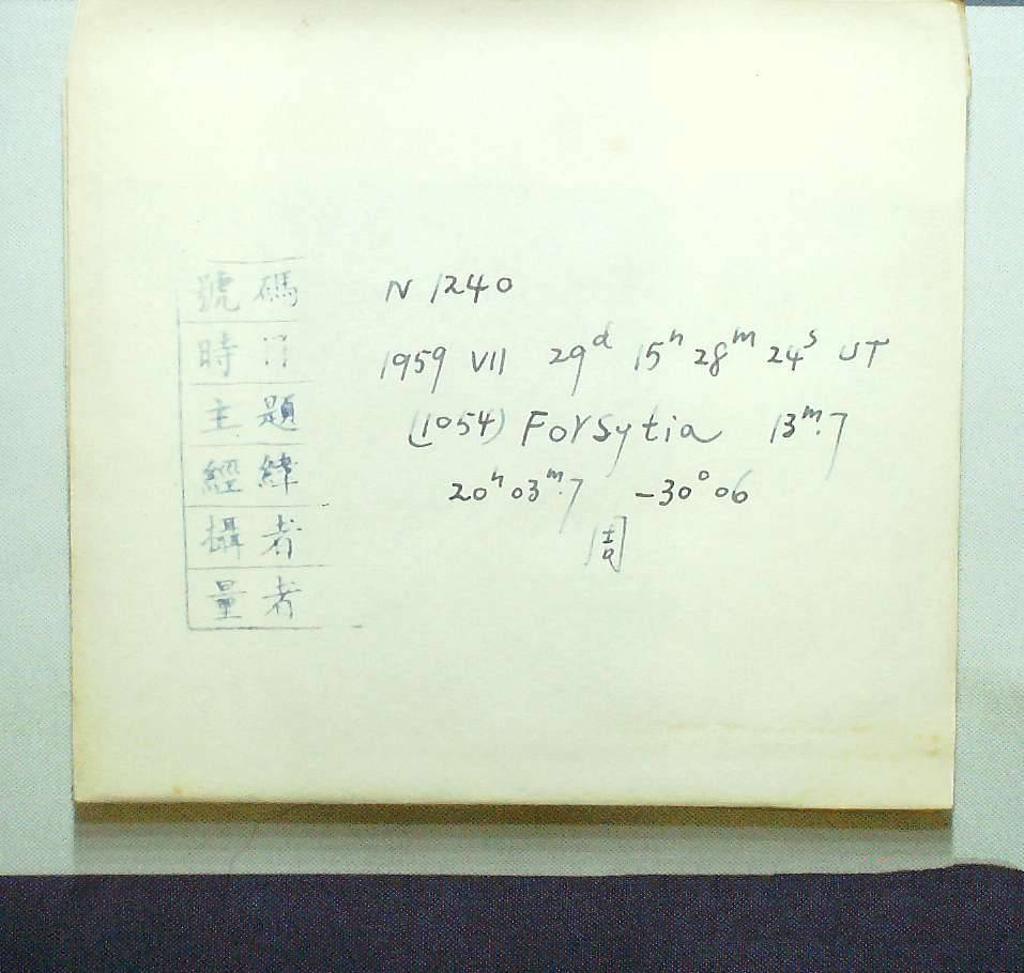 號碼 N 1240
時日 1959 VII 29ᵈ 15ʰ 28ᵐ 24ˢ UT
主題 (1054) Forsytia 13ᵐ.7
經緯 20ʰ 03ᵐ.7 -30° 06
攝者 周
量者